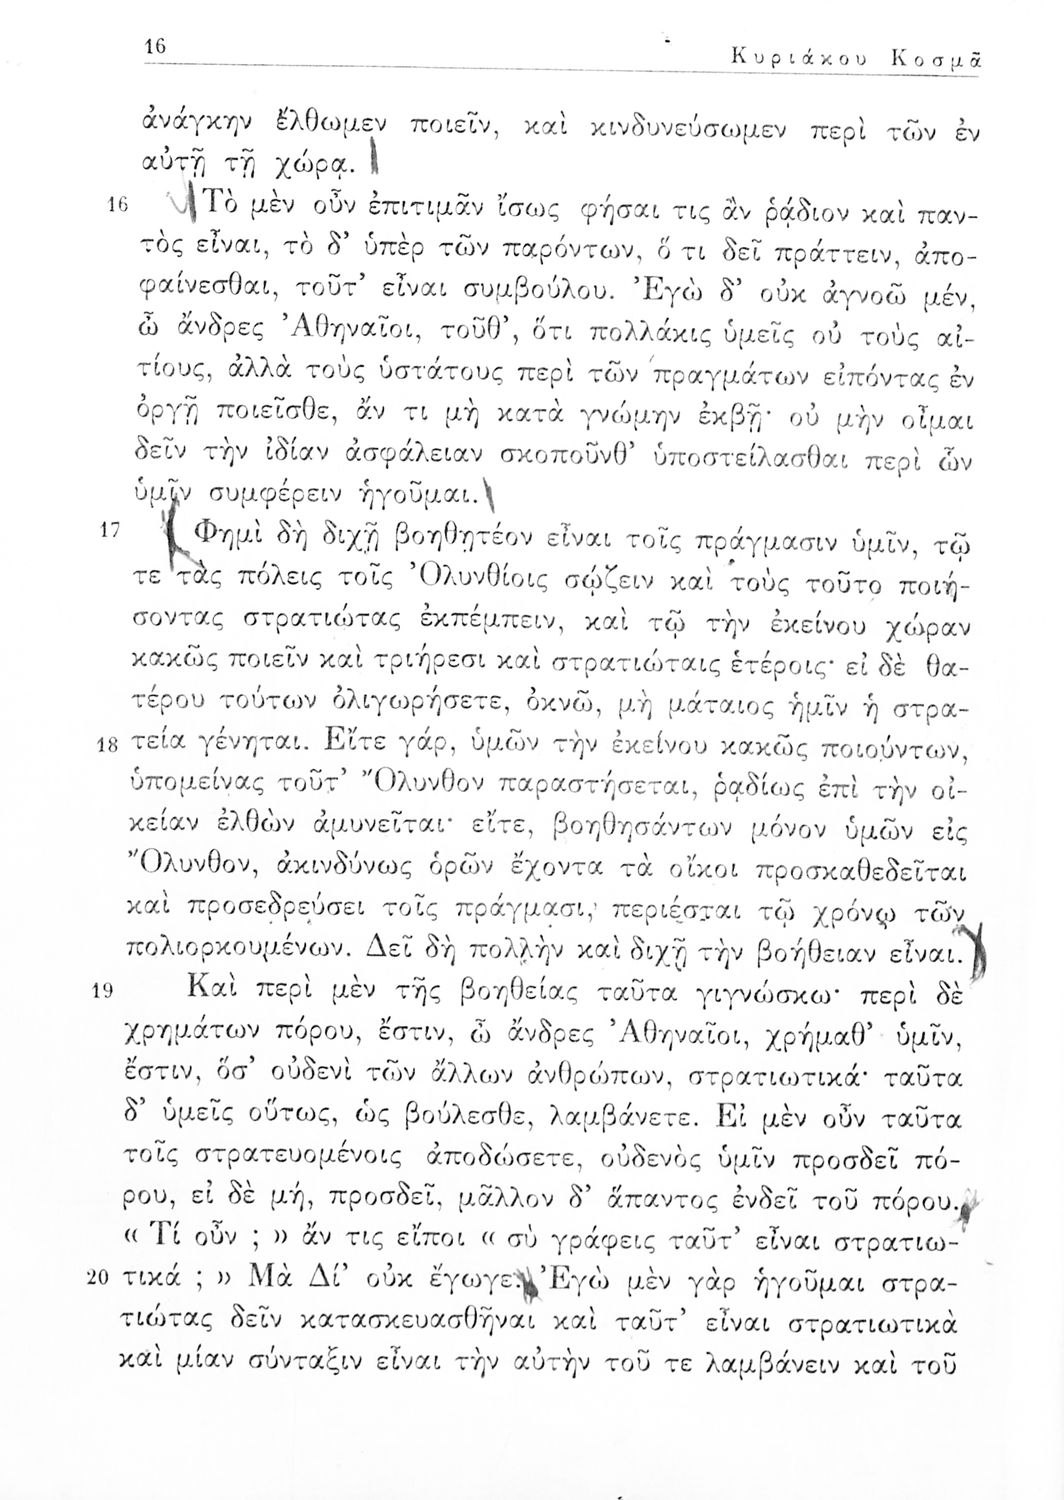 16
Κυριάκου Κοσμᾶ
ἀνάγκην ἔλθωμεν ποιεῖν, καὶ κινδυνεύσωμεν περὶ τῶν ἐν
αὐτῇ τῇ χώρᾳ.
16 Τὸ μὲν οὖν ἐπιτιμᾶν ἴσως φήσαι τις ἂν ῥᾴδιον καὶ παν-
τὸς εἶναι, τὸ δ’ ὑπὲρ τῶν παρόντων, ὅ τι δεῖ πράττειν, ἀπο-
φαίνεσθαι, τοῦτ’ εἶναι συμβούλου. Ἐγὼ δ’ οὐκ ἀγνοῶ μέν,
ὦ ἄνδρες Ἀθηναῖοι, τοῦθ’, ὅτι πολλάκις ὑμεῖς οὐ τοὺς αἰ-
τίους, ἀλλὰ τοὺς ὑστάτους περὶ τῶν πραγμάτων εἰπόντας ἐν
ὀργῇ ποιεῖσθε, ἄν τι μὴ κατὰ γνώμην ἐκβῇ· οὐ μὴν οἶμαι
δεῖν τὴν ἰδίαν ἀσφάλειαν σκοποῦνθ’ ὑποστείλασθαι περὶ ὧν
ὑμῖν συμφέρειν ἡγοῦμαι.
17 Φημὶ δὴ διχῇ βοηθητέον εἶναι τοῖς πράγμασιν ὑμῖν, τῷ
τε τὰς πόλεις τοῖς Ὀλυνθίοις σῴζειν καὶ τοὺς τοῦτο ποιή-
σοντας στρατιώτας ἐκπέμπειν, καὶ τῷ τὴν ἐκείνου χώραν
κακῶς ποιεῖν καὶ τριήρεσι καὶ στρατιώταις ἑτέροις· εἰ δὲ θα-
τέρου τούτων ὀλιγωρήσετε, ὀκνῶ, μὴ μάταιος ἡμῖν ἡ στρα-
18 τεία γένηται. Εἴτε γάρ, ὑμῶν τὴν ἐκείνου κακῶς ποιούντων,
ὑπομείνας τοῦτ’ Ὄλυνθον παραστήσεται, ῥᾳδίως ἐπὶ τὴν οἰ-
κείαν ἐλθὼν ἀμυνεῖται· εἴτε, βοηθησάντων μόνον ὑμῶν εἰς
Ὄλυνθον, ἀκινδύνως ὁρῶν ἔχοντα τὰ οἴκοι προσκαθεδεῖται
καὶ προσεδρεύσει τοῖς πράγμασι, περιέσται τῷ χρόνῳ τῶν
πολιορκουμένων. Δεῖ δὴ πολλὴν καὶ διχῇ τὴν βοήθειαν εἶναι.
19 Καὶ περὶ μὲν τῆς βοηθείας ταῦτα γιγνώσκω· περὶ δὲ
χρημάτων πόρου, ἔστιν, ὦ ἄνδρες Ἀθηναῖοι, χρήμαθ’ ὑμῖν,
ἔστιν, ὅσ’ οὐδενὶ τῶν ἄλλων ἀνθρώπων, στρατιωτικά· ταῦτα
δ’ ὑμεῖς οὕτως, ὡς βούλεσθε, λαμβάνετε. Εἰ μὲν οὖν ταῦτα
τοῖς στρατευομένοις ἀποδώσετε, οὐδενὸς ὑμῖν προσδεῖ πό-
ρου, εἰ δὲ μή, προσδεῖ, μᾶλλον δ’ ἅπαντος ἐνδεῖ τοῦ πόρου.
« Τί οὖν ; » ἄν τις εἴποι « σὺ γράφεις ταῦτ’ εἶναι στρατιω-
20 τικά ; » Μὰ Δί’ οὐκ ἔγωγε. Ἐγὼ μὲν γὰρ ἡγοῦμαι στρα-
τιώτας δεῖν κατασκευασθῆναι καὶ ταῦτ’ εἶναι στρατιωτικὰ
καὶ μίαν σύνταξιν εἶναι τὴν αὐτὴν τοῦ τε λαμβάνειν καὶ τοῦ